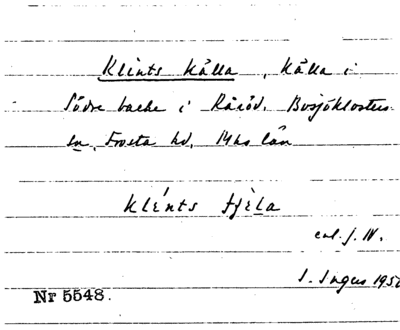 Klints källa, källa i
Södre backe i Råröd, Bosjöklosters
sn, Frosta hd, Mhs län
Klénts tjèla
enl. f. IV.
I. Ingers 195
Nr 5548.